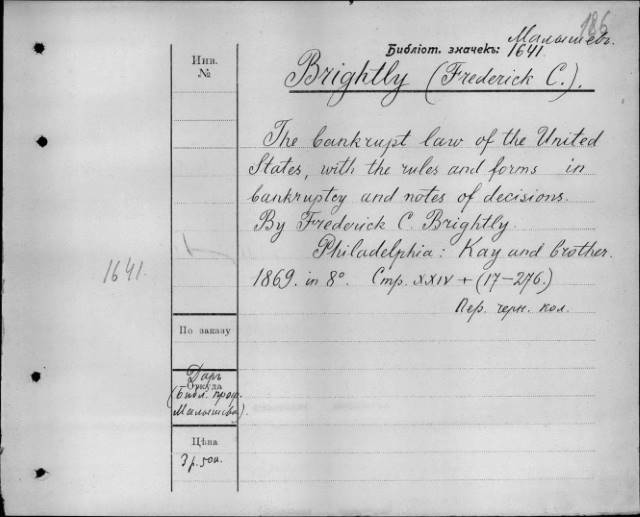 186
Малышевъ.
Библіот. значекъ: 1641.
Инв.
№
Brightly (Frederick C.).
The bankrupt law of the United
States, with the rules and forms in
bankruptcy and notes of decisions.
By Frederick C. Brightly.
Philadelphia: Kay and brother.
1641.
1869. in 8°. Стр. XXIV + (17–276.)
Пер. черн. кол.
По заказу
Даръ
Откуда
(Библ. проф.
Малышева).
Цѣна
3 р. 50 к.